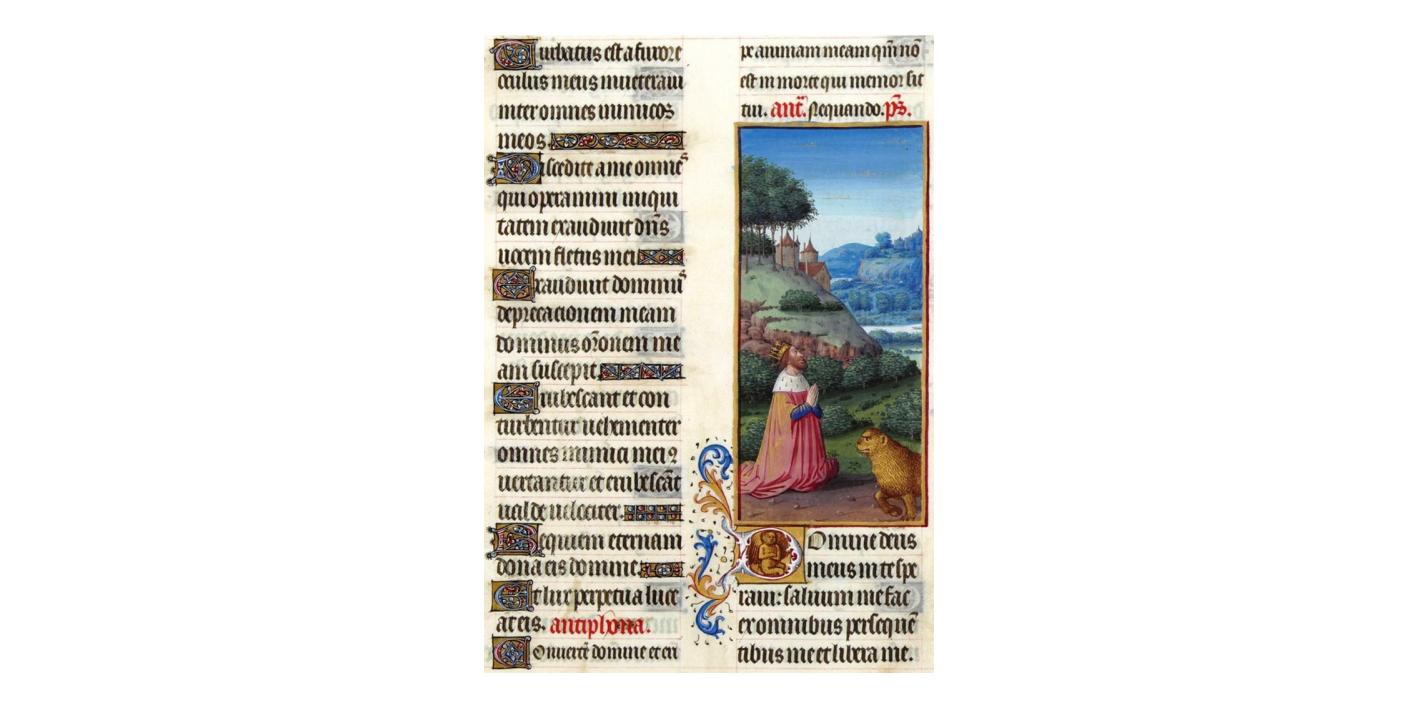 Turbatus est a furore
oculus meus inueteraui
inter omnes inimicos
meos.
Discedite a me omēs
qui operamini iniqui
tatem exaudiuit dn̄s
uocem fletus mei
Exaudiuit dominus
deprecacionem meam
dominus or̄onem me
am suscepit.
Erubescant et con
turbentur uehementer
omnes inimici mei ⁊
uertantur et erubescāt
ualde uelociter.
Requiem eternam
dona eis domine.
Et lux perpetua luce
at eis. antiphona.
Conuertē domine et eri
pe animam meam qm̄ nō
est in morte qui memor sit
tui. ant̄. Nequando. ps̄.
Domine deus
meus in te spe
raui: saluum me fac
ex omnibus persequē
tibus me et libera me.